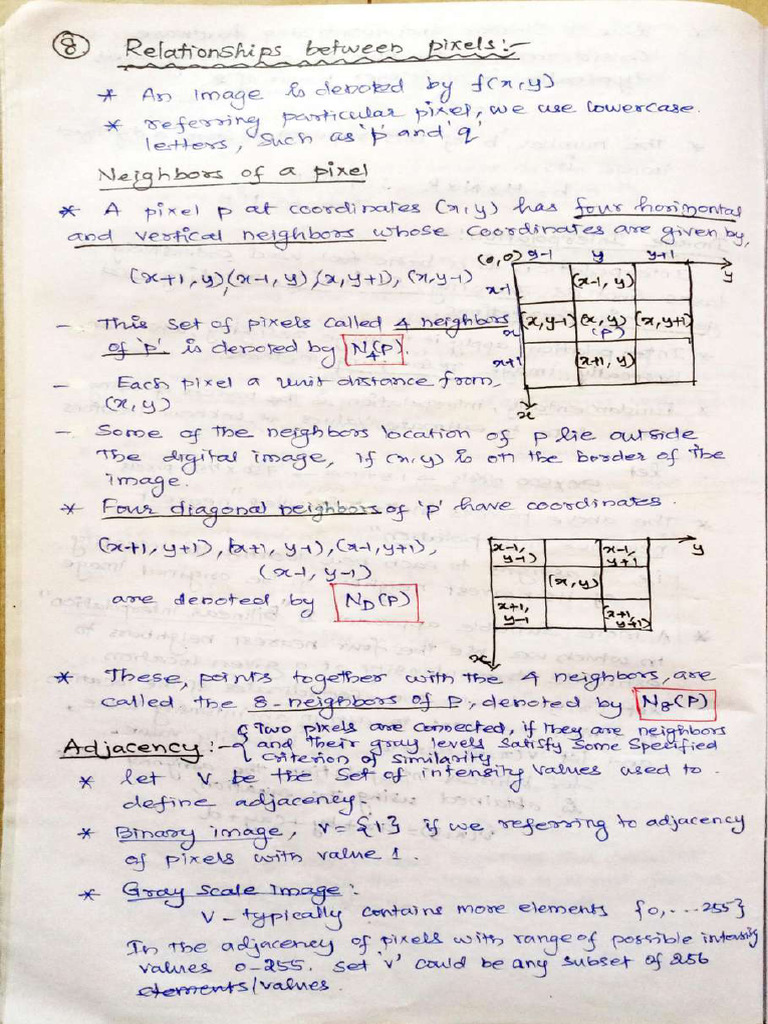 8 Relationships between pixels:-
* An Image is denoted by f(x,y)
* referring particular pixel, we use lowercase
letters, such as 'p' and 'q'
Neighbors of a pixel
* A pixel p at coordinates (x,y) has four horizontal
and vertical neighbors whose coordinates are given by,
(x+1, y)(x-1, y),(x, y+1), (x, y-1)
(0,0) y-1 y y+1 y
x-1 (x-1, y)
x (x, y-1) (x, y) (p) (x, y+1)
x+1 (x+1, y)
x
- This set of pixels called 4 neighbors
of 'p'. is denoted by N4(P).
- Each pixel a unit distance from,
(x, y)
- Some of the neighbors location of p lie outside
the digital image, if (x, y) is on the border of the
image.
* Four diagonal neighbors of 'p' have coordinates.
(x+1, y+1), (x+1, y-1), (x-1, y+1),
(x-1, y-1)
are denoted by ND(P)
x-1, y-1 x-1, y+1 y
(x, y)
x+1, y-1 (x+1, y+1)
x
* These, points together with the 4 neighbors, are
called the 8-neighbors of P, denoted by N8(P)
Adjacency :- { Two pixels are connected, if they are neighbors
and their gray levels satisfy some specified
criterion of similarity
* let V be the set of intensity values used to
define adjacency.
* Binary image, V = {1} if we referring to adjacency
of pixels with value 1.
* Gray scale Image:
V - typically contains more elements {0,...255}
In the adjacency of pixels with range of possible intensity
values 0-255. set 'V' could be any subset of 256
elements/values.